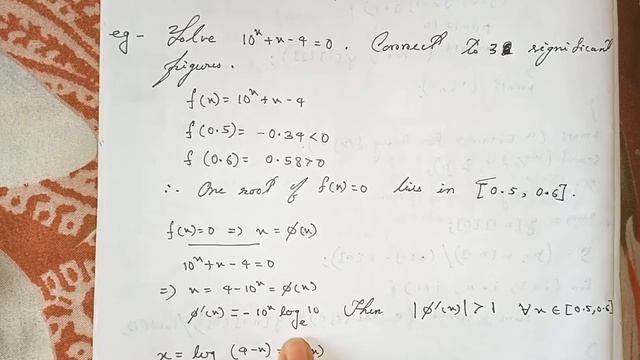 eg - Solve 10^x + x - 4 = 0. Correct to 3 significant
figures.
f(x) = 10^x + x - 4
f(0.5) = -0.34 < 0
f(0.6) = 0.58 > 0
∴ One root of f(x) = 0 lies in [0.5, 0.6].
f(x) = 0 => x = φ(x)
10^x + x - 4 = 0
=> x = 4 - 10^x = φ(x)
φ'(x) = -10^x log_e 10 Then |φ'(x)| > 1 ∀ x ∈ [0.5, 0.6]
x = log (4 - x) = x)